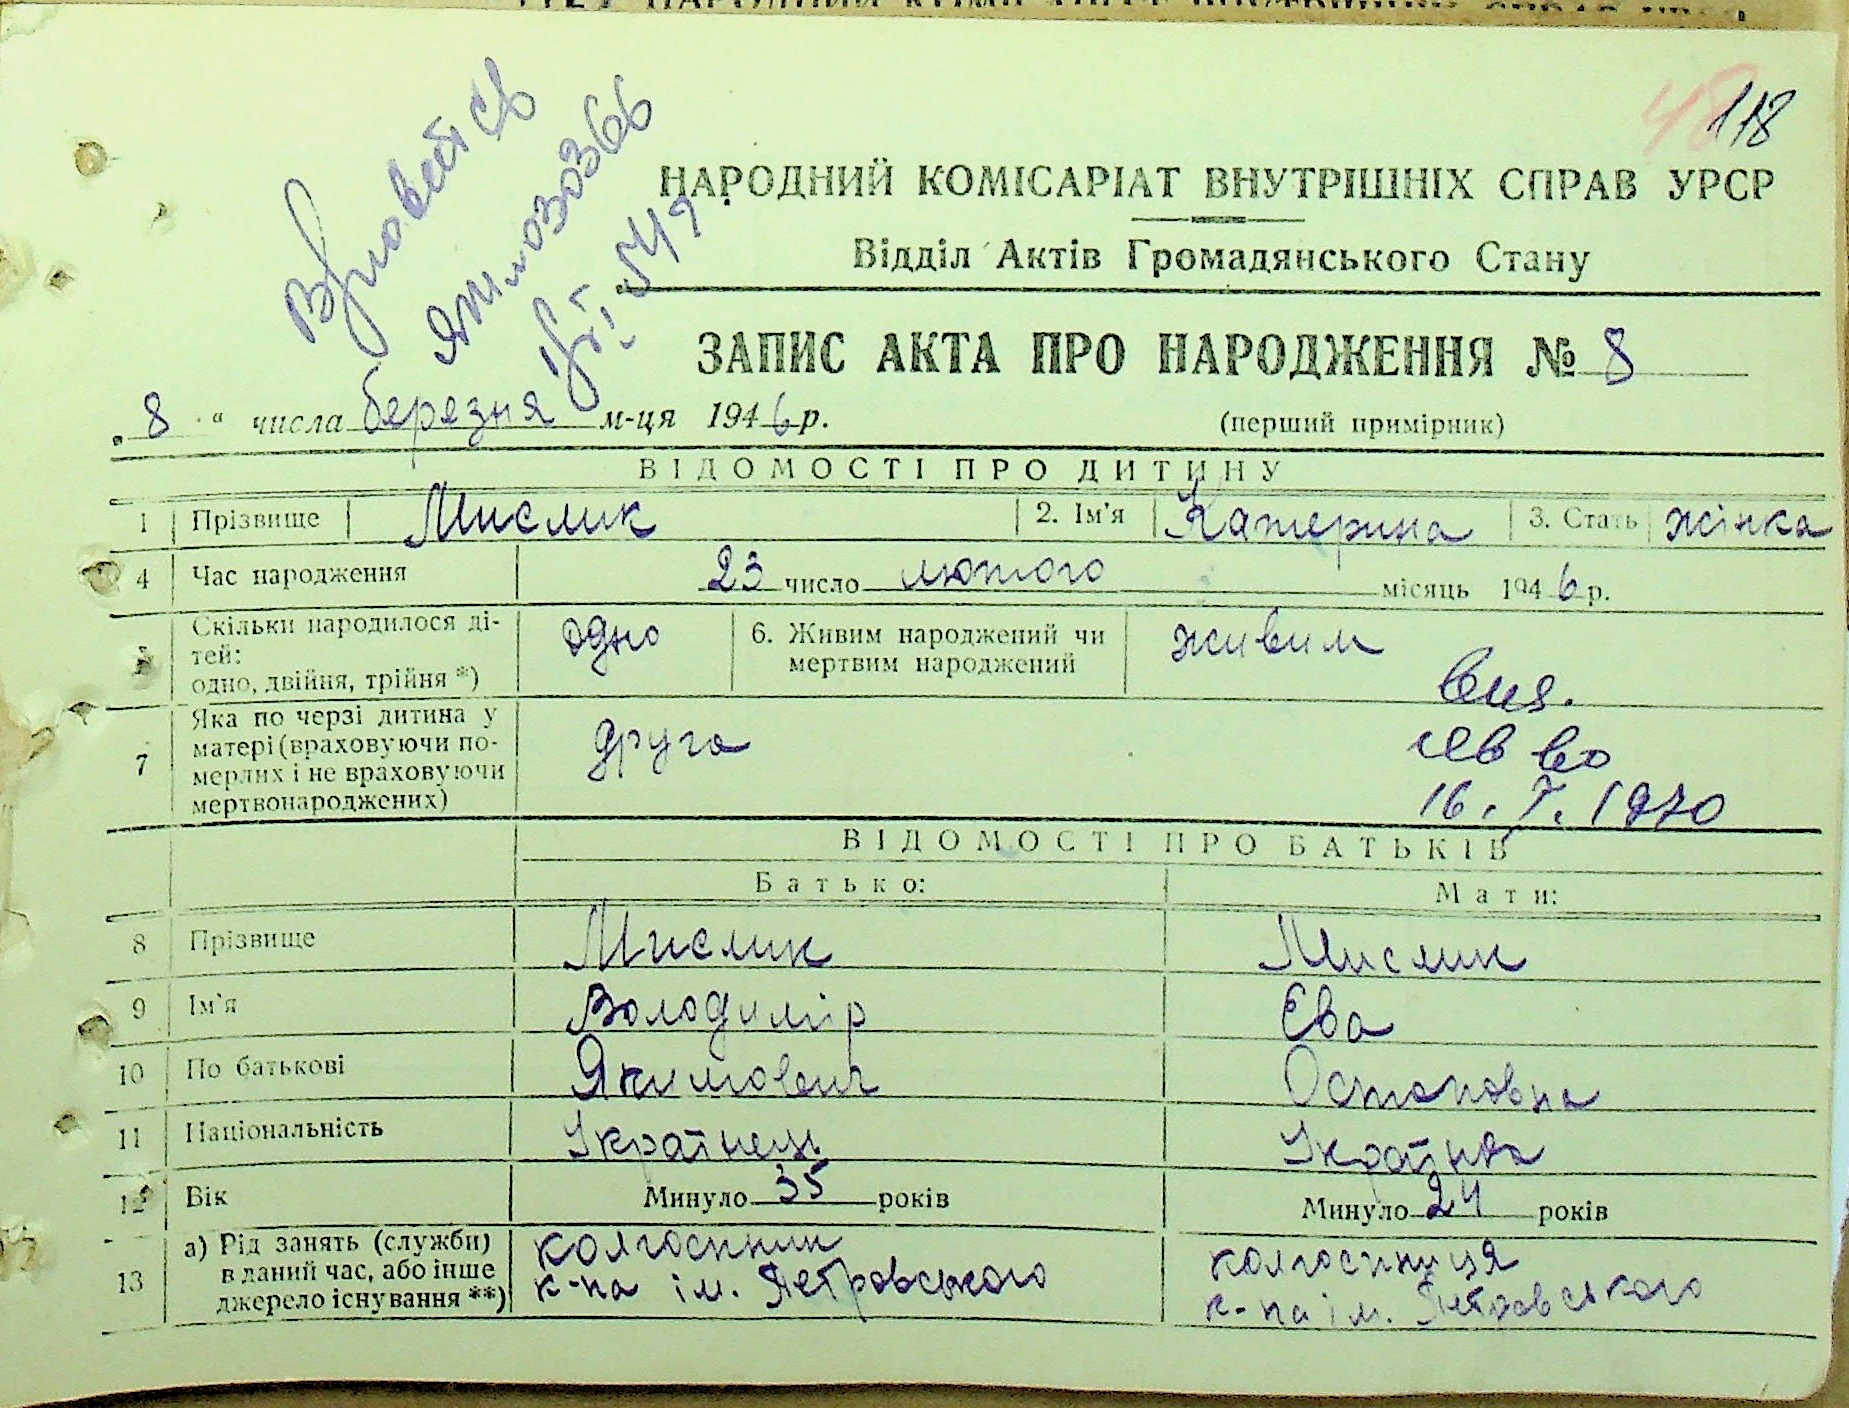 48 118
НАРОДНИЙ КОМІСАРІАТ ВНУТРІШНІХ СПРАВ УРСР
Відділ Актів Громадянського Стану
ЗАПИС АКТА ПРО НАРОДЖЕННЯ № 8
„ 8 “ числа березня м-ця 1946 р. (перший примірник)
ВІДОМОСТІ ПРО ДИТИНУ
1 Прізвище Мислик 2. Ім'я Катерина 3. Стать жінка
4 Час народження 23 число лютого місяць 1946 р.
5 Скільки народилося ді-
тей:
одно, двійня, трійня *) одно 6. Живим народжений чи
мертвим народжений живим
7 Яка по черзі дитина у
матері (враховуючи по-
мерлих і не враховуючи
мертвонароджених) друга
св во
16. V. 1970
ВІДОМОСТІ ПРО БАТЬКІВ
Батько: Мати:
8 Прізвище Мислик Мислик
9 Ім'я Володимір Єва
10 По батькові Якимович Остаповна
11 Національність Українець Українка
12 Вік Минуло 35 років Минуло 24 років
13 а) Рід занять (служби)
в даний час, або інше
джерело існування **) колгоспник
к-па ім. Петровського колгоспниця
к-па ім. Петровського